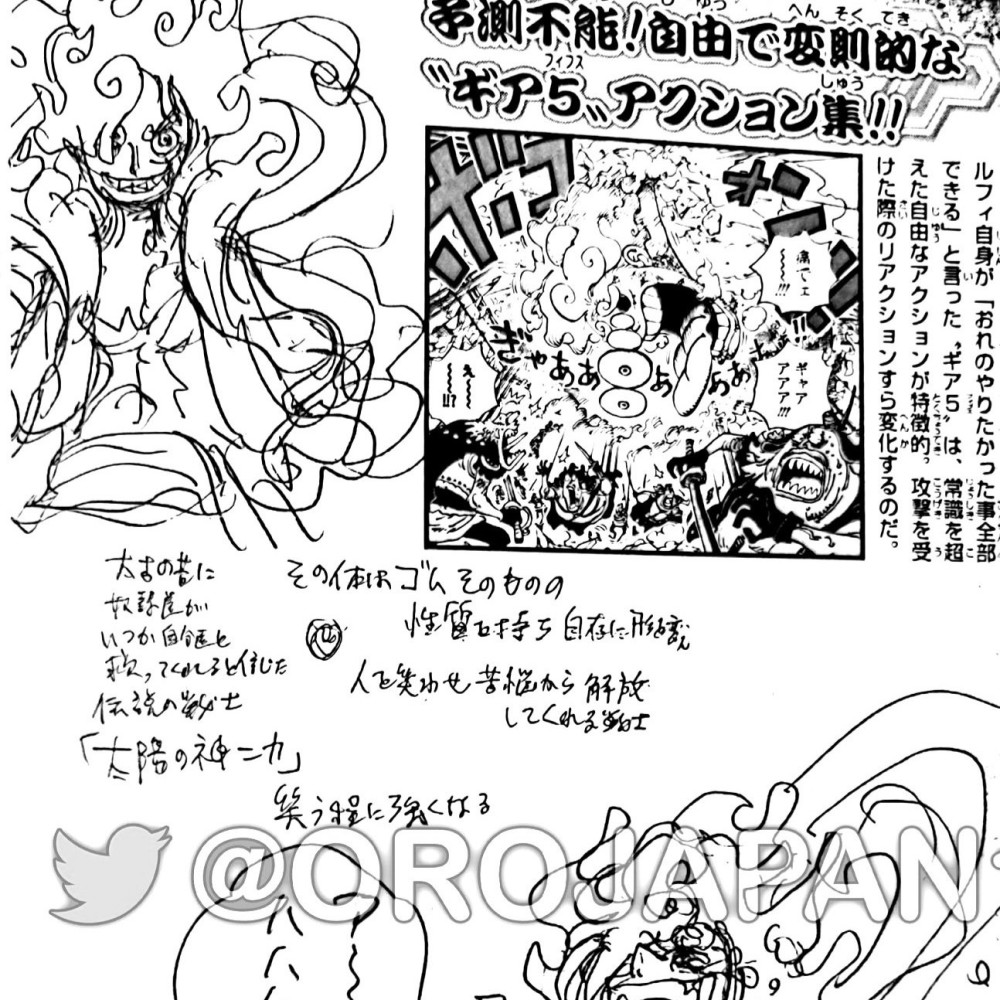 予測不能！自由で変則的な
〝ギア5〟アクション集!!
ルフィ自身が「おれのやりたかった事全部
できる」と言った〝ギア5〟は、常識を超
えた自由なアクションが特徴的。攻撃を受
けた際のリアクションすら変化するのだ。
痛でェ
〜〜〜!!!
ギャア
アアア!!!
え〜〜
〜〜!!?
ぎゃああああああ
太古の昔に
奴隷達が
いつか自分達を
救ってくれると信じた
伝説の戦士
「太陽の神ニカ」
その体はゴムそのものの
性質を持ち 自在に形を
人を笑わせ 苦悩から 解放
してくれる戦士
笑う程に強くなる
@OROJAPAN
ア〜
ハハ
ハハ